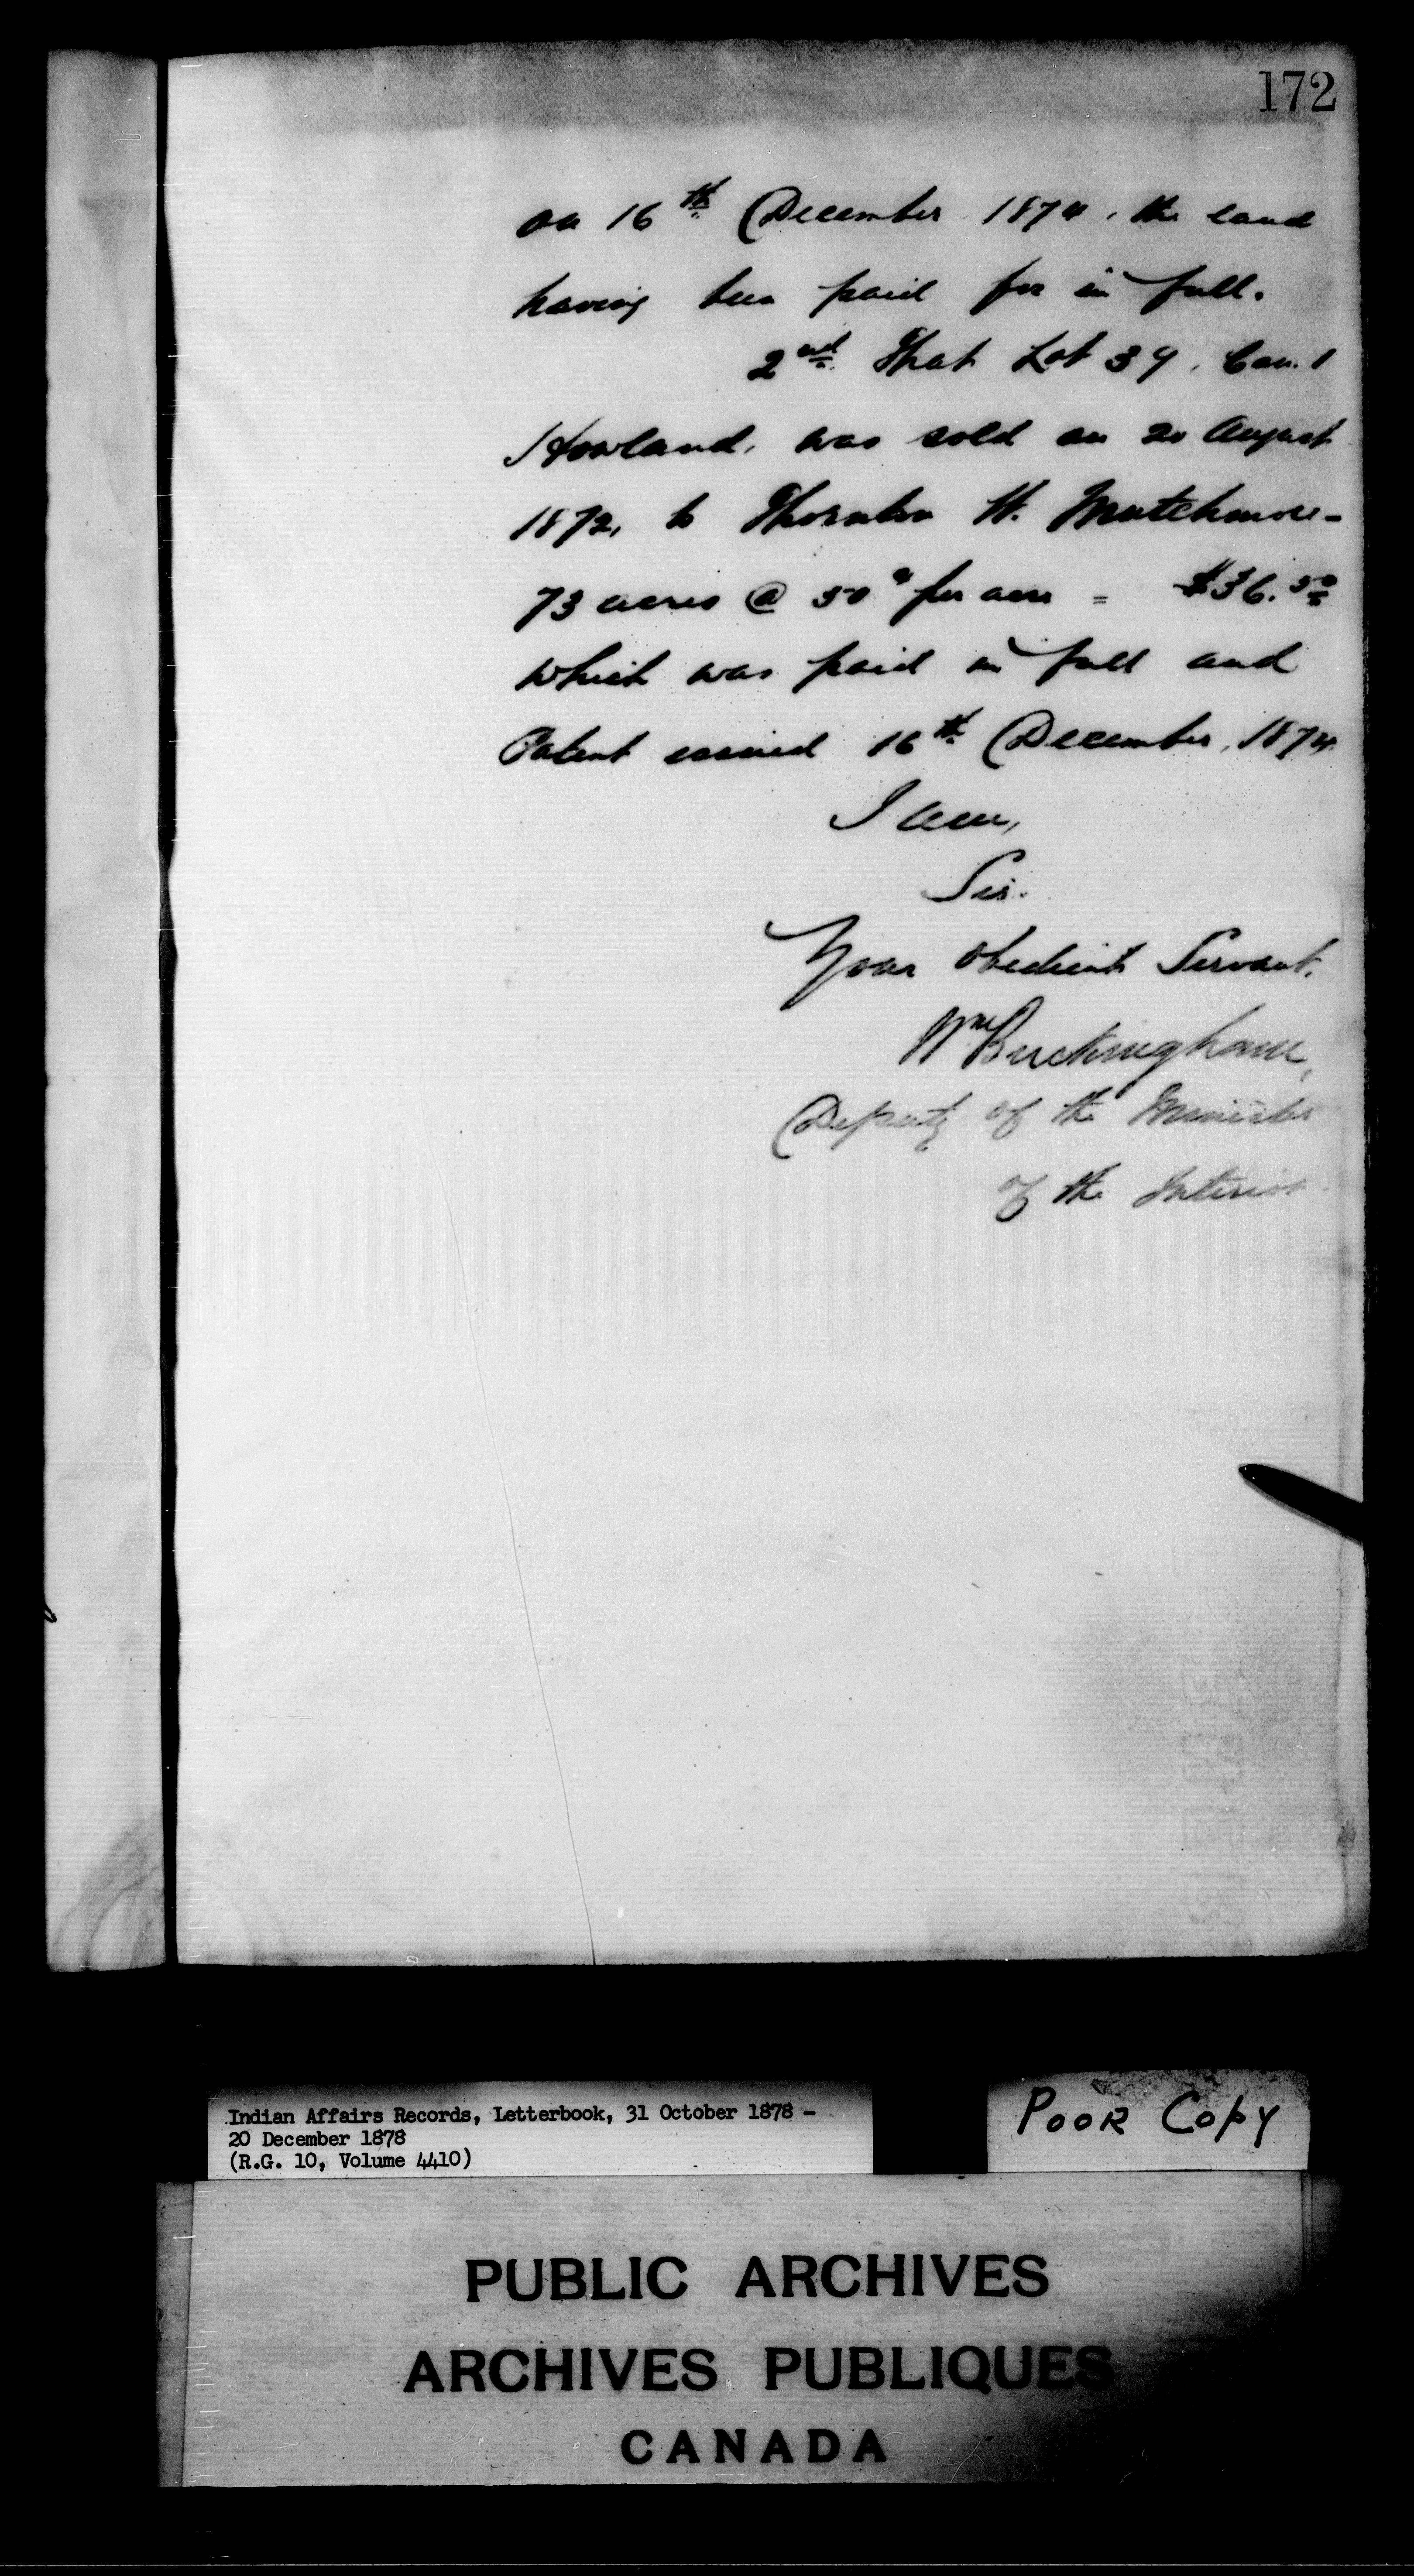 172
on 16th December 1874, the land
having been paid for in full.
2nd. That Lot 39, Con. 1
Howland, was sold on 20 August
1872, to Thornton H. Mutchmore -
73 acres @ 50¢ per acre = $36.50
which was paid in full and
Patent issued 16th December, 1874
I am,
Sir.
Your obedient Servant,
Wm Buckingham,
Deputy of the Minister
of the Interior.
Indian Affairs Records, Letterbook, 31 October 1878 -
20 December 1878
(R.G. 10, Volume 4410)
POOR COPY
PUBLIC ARCHIVES
ARCHIVES PUBLIQUES
CANADA